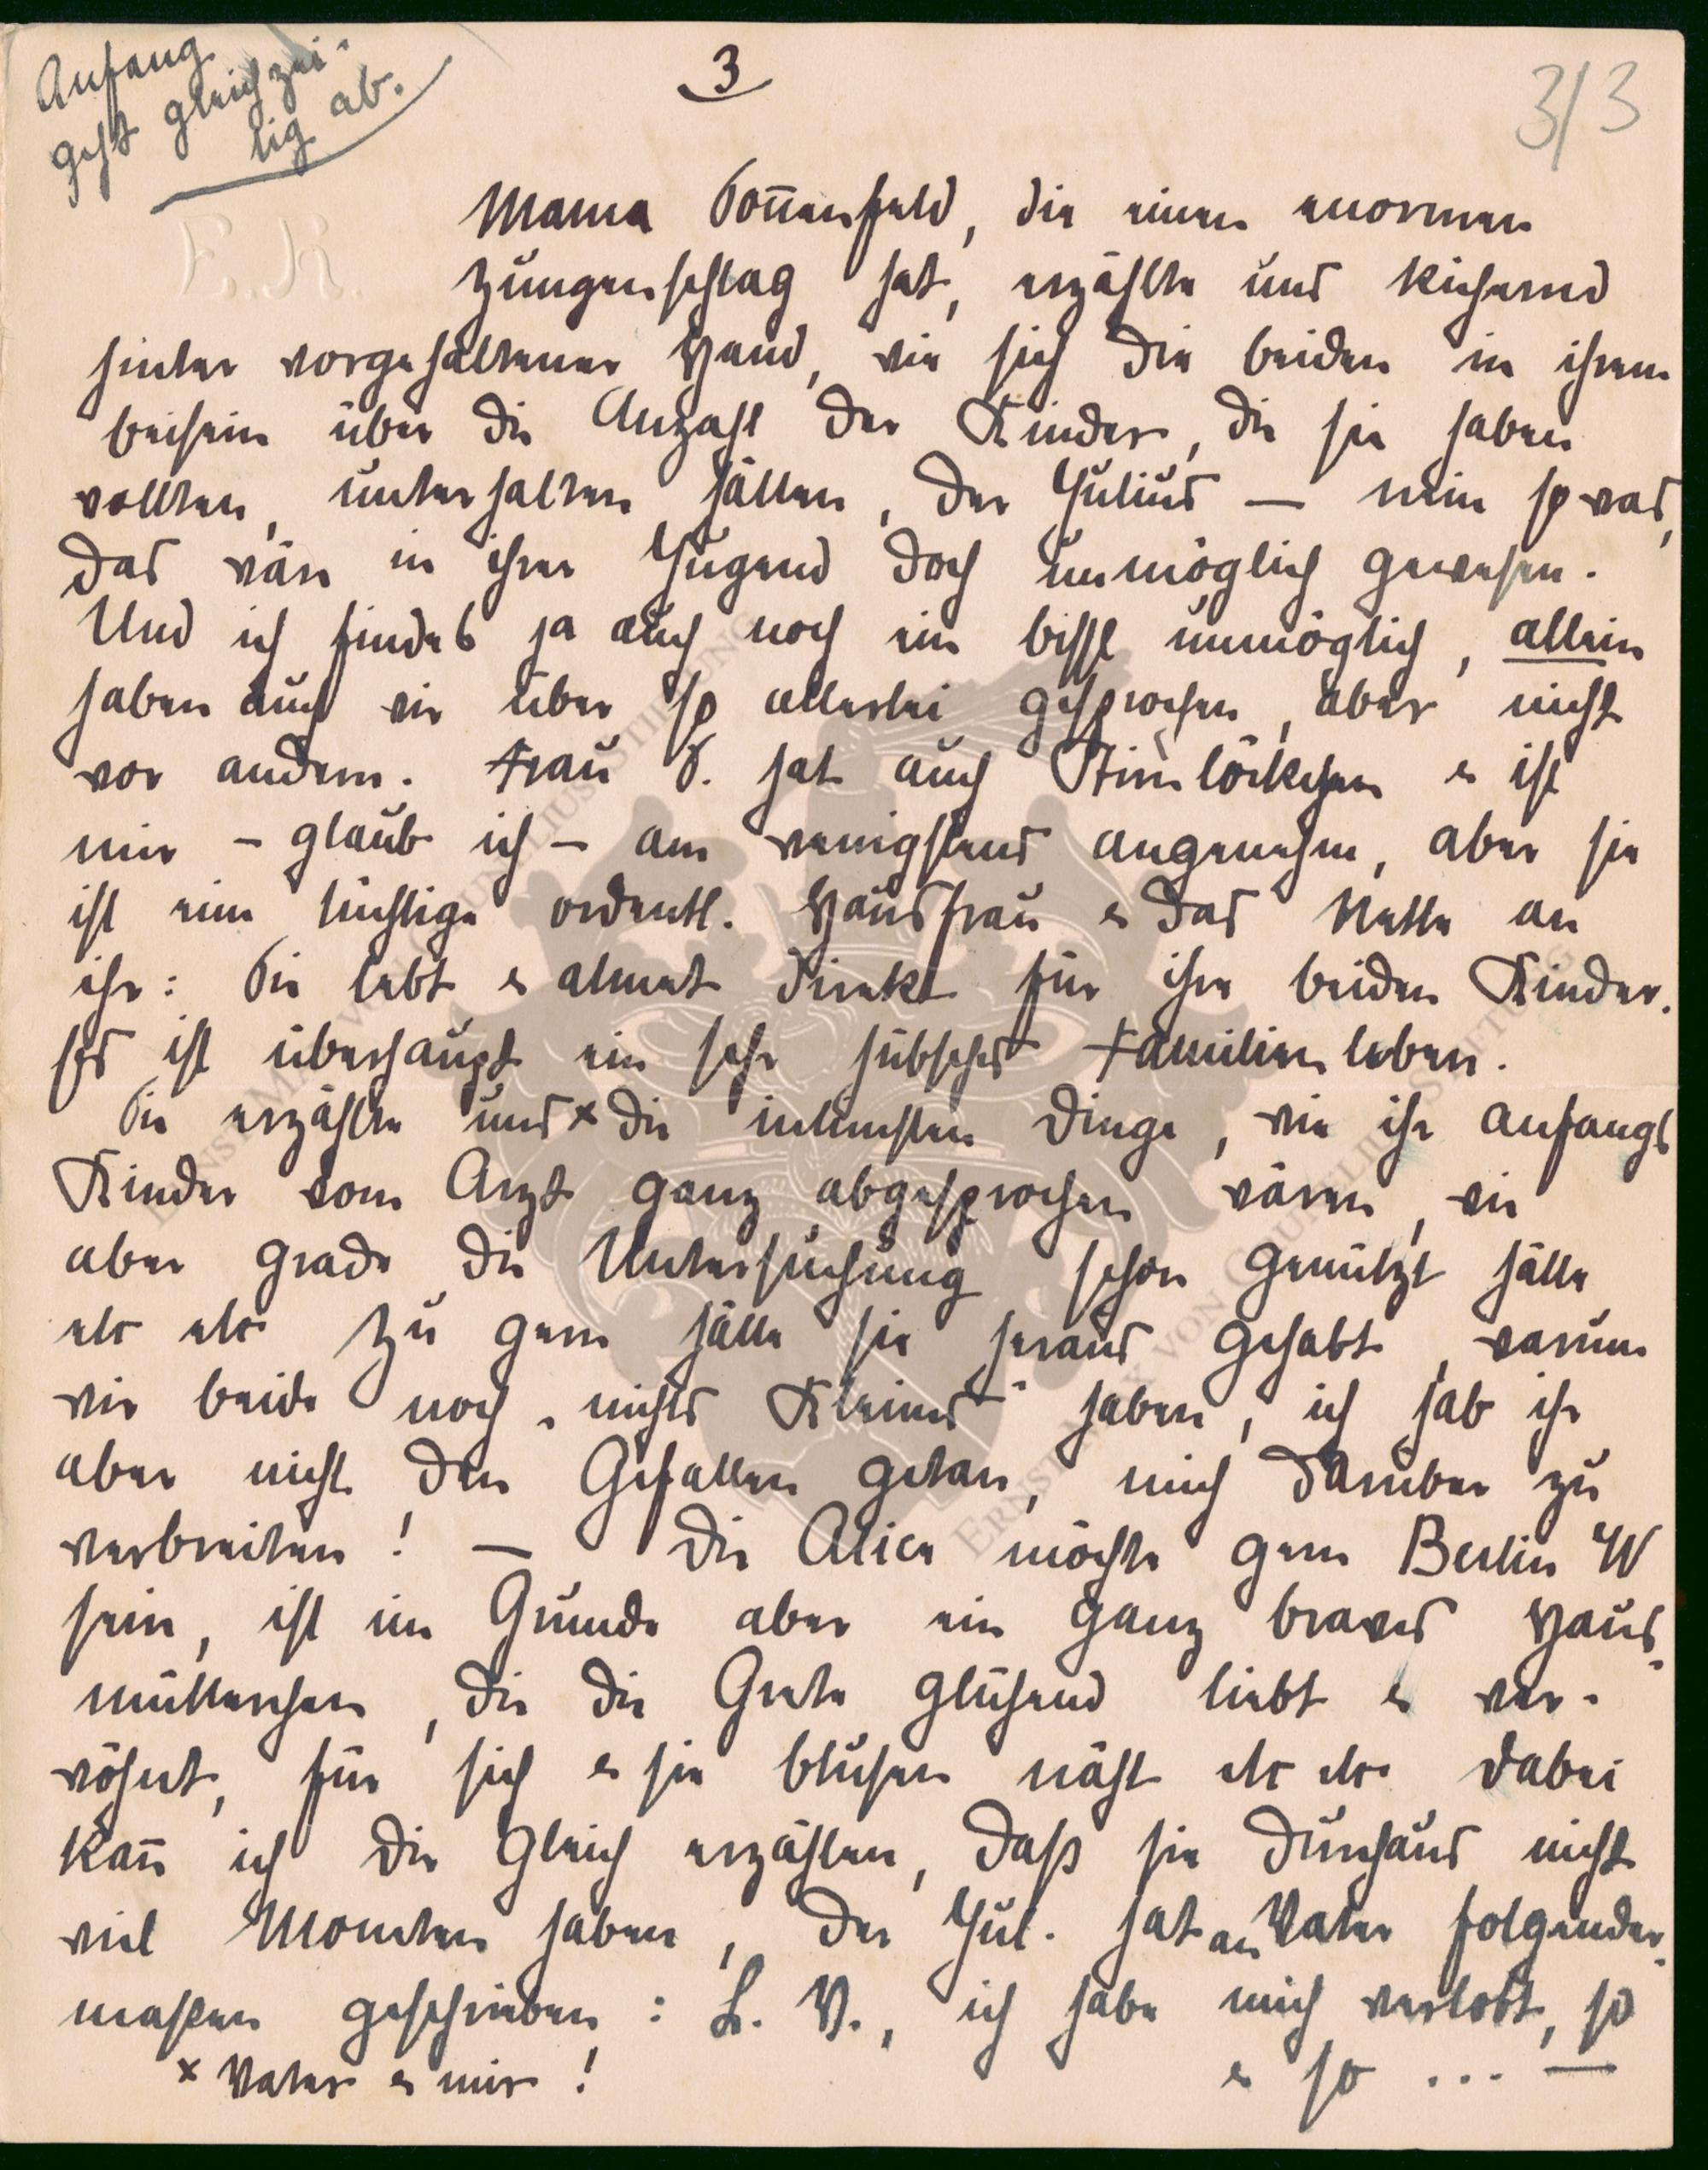 Anfang
geht gleichzei-
tig ab.
3
3/3
E. K
Mama Sonnenfeld, die einen enormen
Zungenschlag hat, erzählte uns kichernd
hinter vorgehaltener Hand, wie sich die beiden in ihrem
beisein über die Anzahl der Kinder, die sie haben
wollten, unterhalten hätten, der Julius — nein so was,
das wär in ihrer Jugend doch unmöglich gewesen.
Und ich findes ja auch noch ein bissl unmöglich, allein
haben auch wir über so allerlei gesprochen, aber nicht
vor andern. Frau S. hat auch Stirnlöckchen & ist
mir – glaub ich – am wenigstens angenehm, aber sie
ist eine tüchtige ordentl. Hausfrau & das Nette an
ihr: Sie lebt & atmet direkt für ihre beiden Kinder.
Es ist überhaupt ein sehr hübsches Familienleben.
Sie erzählte uns x die intimsten Dinge, wie ihr anfangs
Kinder vom Arzt ganz abgesprochen wären, wie
aber grade die Untersuchung schon genützt hätte
etc etc. Zu gern hätte sie heraus gehabt, warum
wir beide noch „nichts Kleines“ haben, ich hab ihr
aber nicht den Gefallen getan, mich darüber zu
verbreiten! — Die Alice möchte gern Berlin W
sein, ist im Grunde aber ein ganz braves Haus-
mütterchen, die die Grete glühend liebt & ver-
wöhnt, für sich & sie blusen näht etc etc. dabei
kann̄ ich dir gleich erzählen, daß sie durchaus nicht
viel Moneten haben, der Jul. hat an Vater folgender-
maßen geschrieben: L. V., ich habe mich verlobt, so
& so ... —
x Vater & mir!